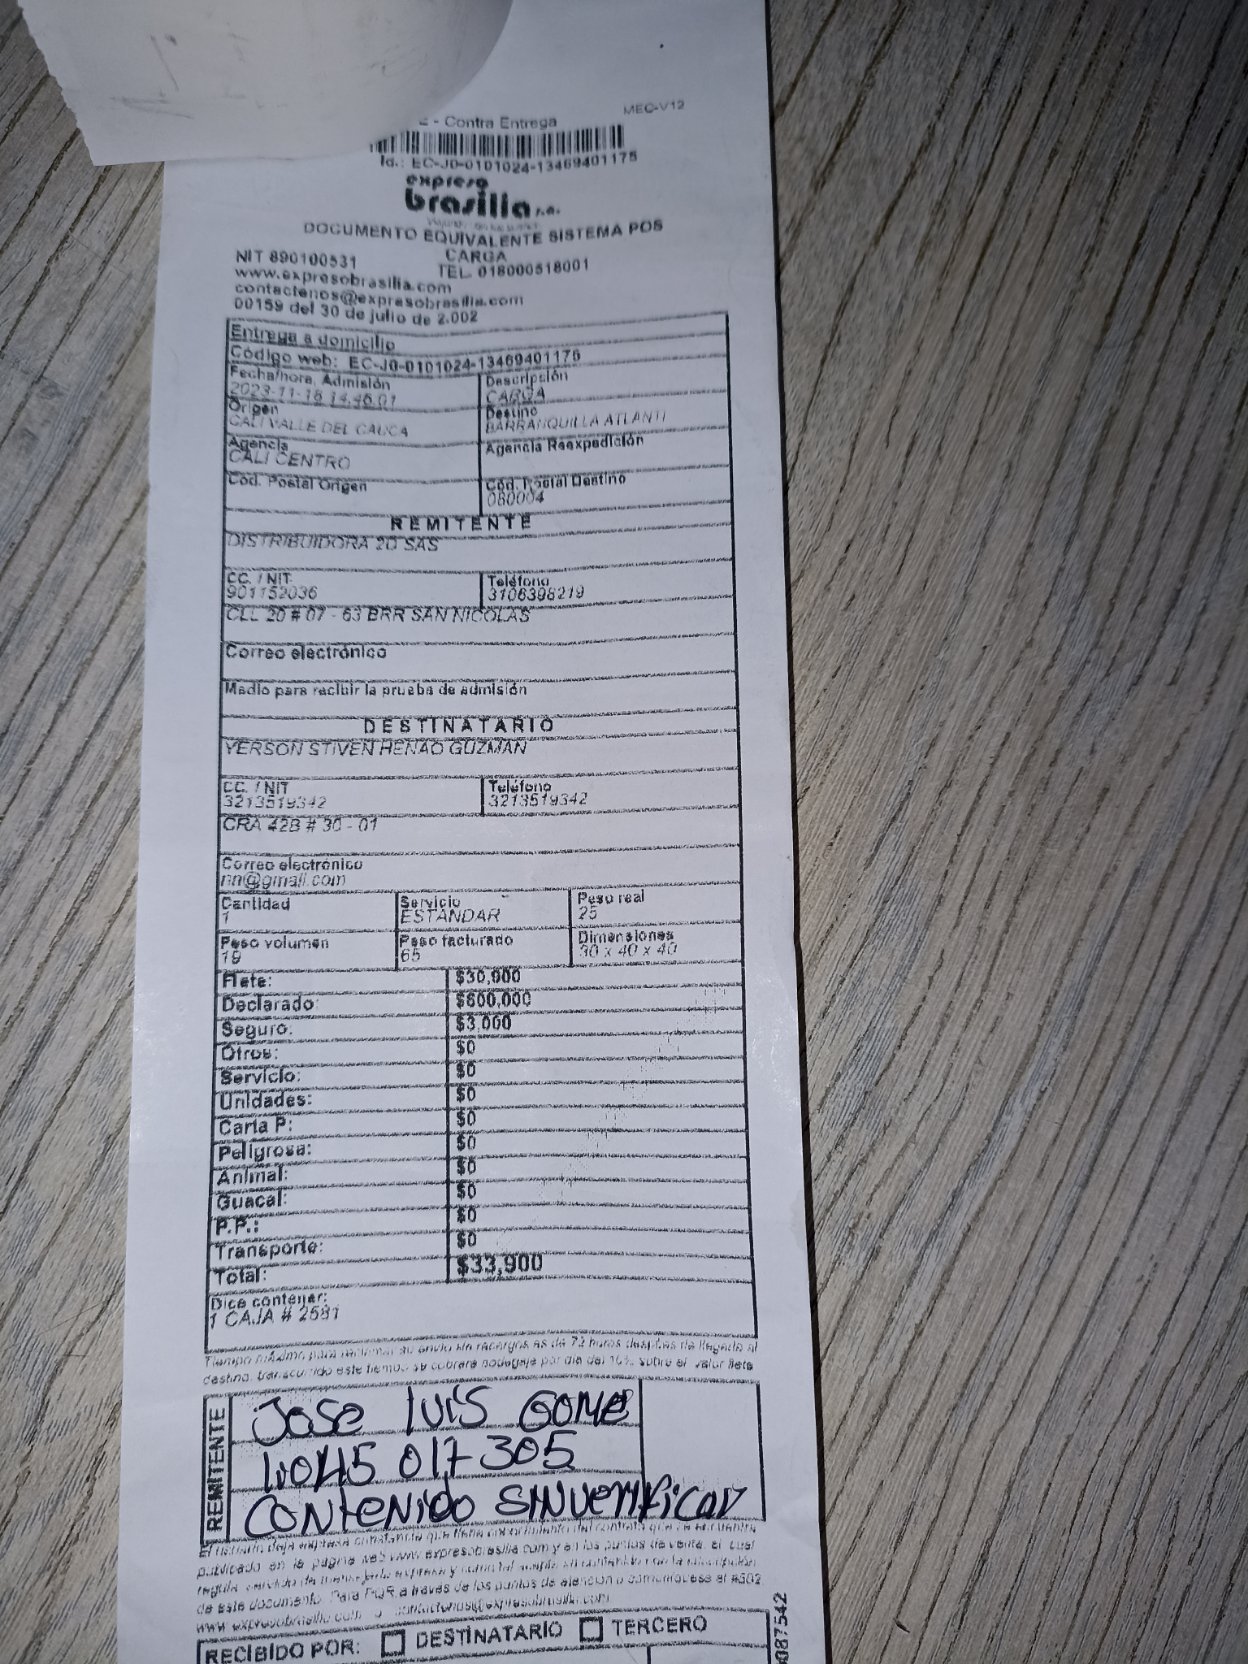 - Contra Entrega
MEC-V12
Id.: EC-J0-0101024-13469401175
expreso
brasilia s.a.
DOCUMENTO EQUIVALENTE SISTEMA POS
CARGA
NIT 890100531
TEL. 018000518001
www.expresobrasilia.com
contactenos@expresobrasilia.com
00159 del 30 de julio de 2.002
Entrega a domicilio
Código web: EC-J0-0101024-13469401175
Fecha/hora, Admisión Descripción
2023-11-16 14:46:01 CARGA
Origen Destino
CALI VALLE DEL CAUCA BARRANQUILLA ATLANTI
Agencia Agencia Reexpedición
CALI CENTRO
Cód. Postal Origen Cód. Postal Destino
080004
REMITENTE
DISTRIBUIDORA 2D SAS
CC. / NIT Teléfono
901152036 3106398219
CLL 20 # 07 - 63 BRR SAN NICOLAS
Correo electrónico
Medio para recibir la prueba de admisión
DESTINATARIO
YERSON STIVEN HENAO GUZMAN
CC. / NIT Teléfono
3213519342 3213519342
CRA 42B # 30 - 01
Correo electrónico
nn@gmail.com
Cantidad Servicio Peso real
1 ESTÁNDAR 25
Peso volumen Peso facturado Dimensiones
19 65 30 x 40 x 40
Flete: $30,900
Declarado: $600,000
Seguro: $3,000
Otros: $0
Servicio: $0
Unidades: $0
Carta P: $0
Peligrosa: $0
Animal: $0
Guacal: $0
P.P.: $0
Transporte: $0
Total: $33,900
Dice contener:
1 CAJA # 2581
Tiempo máximo para reclamar su envío sin recargos es de 72 horas después de llegada al
destino, transcurrido este tiempo se cobrará bodegaje por día del 10% sobre el valor flete
REMITENTE
Jose luis Gome
1.045 017 305
Contenido sin verificar
publicado en la página web www.expresobrasilia.com y en los puntos de venta, el cual
de este documento. Para PQR a través de los puntos de atención o comuníquese al #502
www.expresobrasilia.com o contactenos@expresobrasilia.com
RECIBIDO POR: DESTINATARIO TERCERO
087542